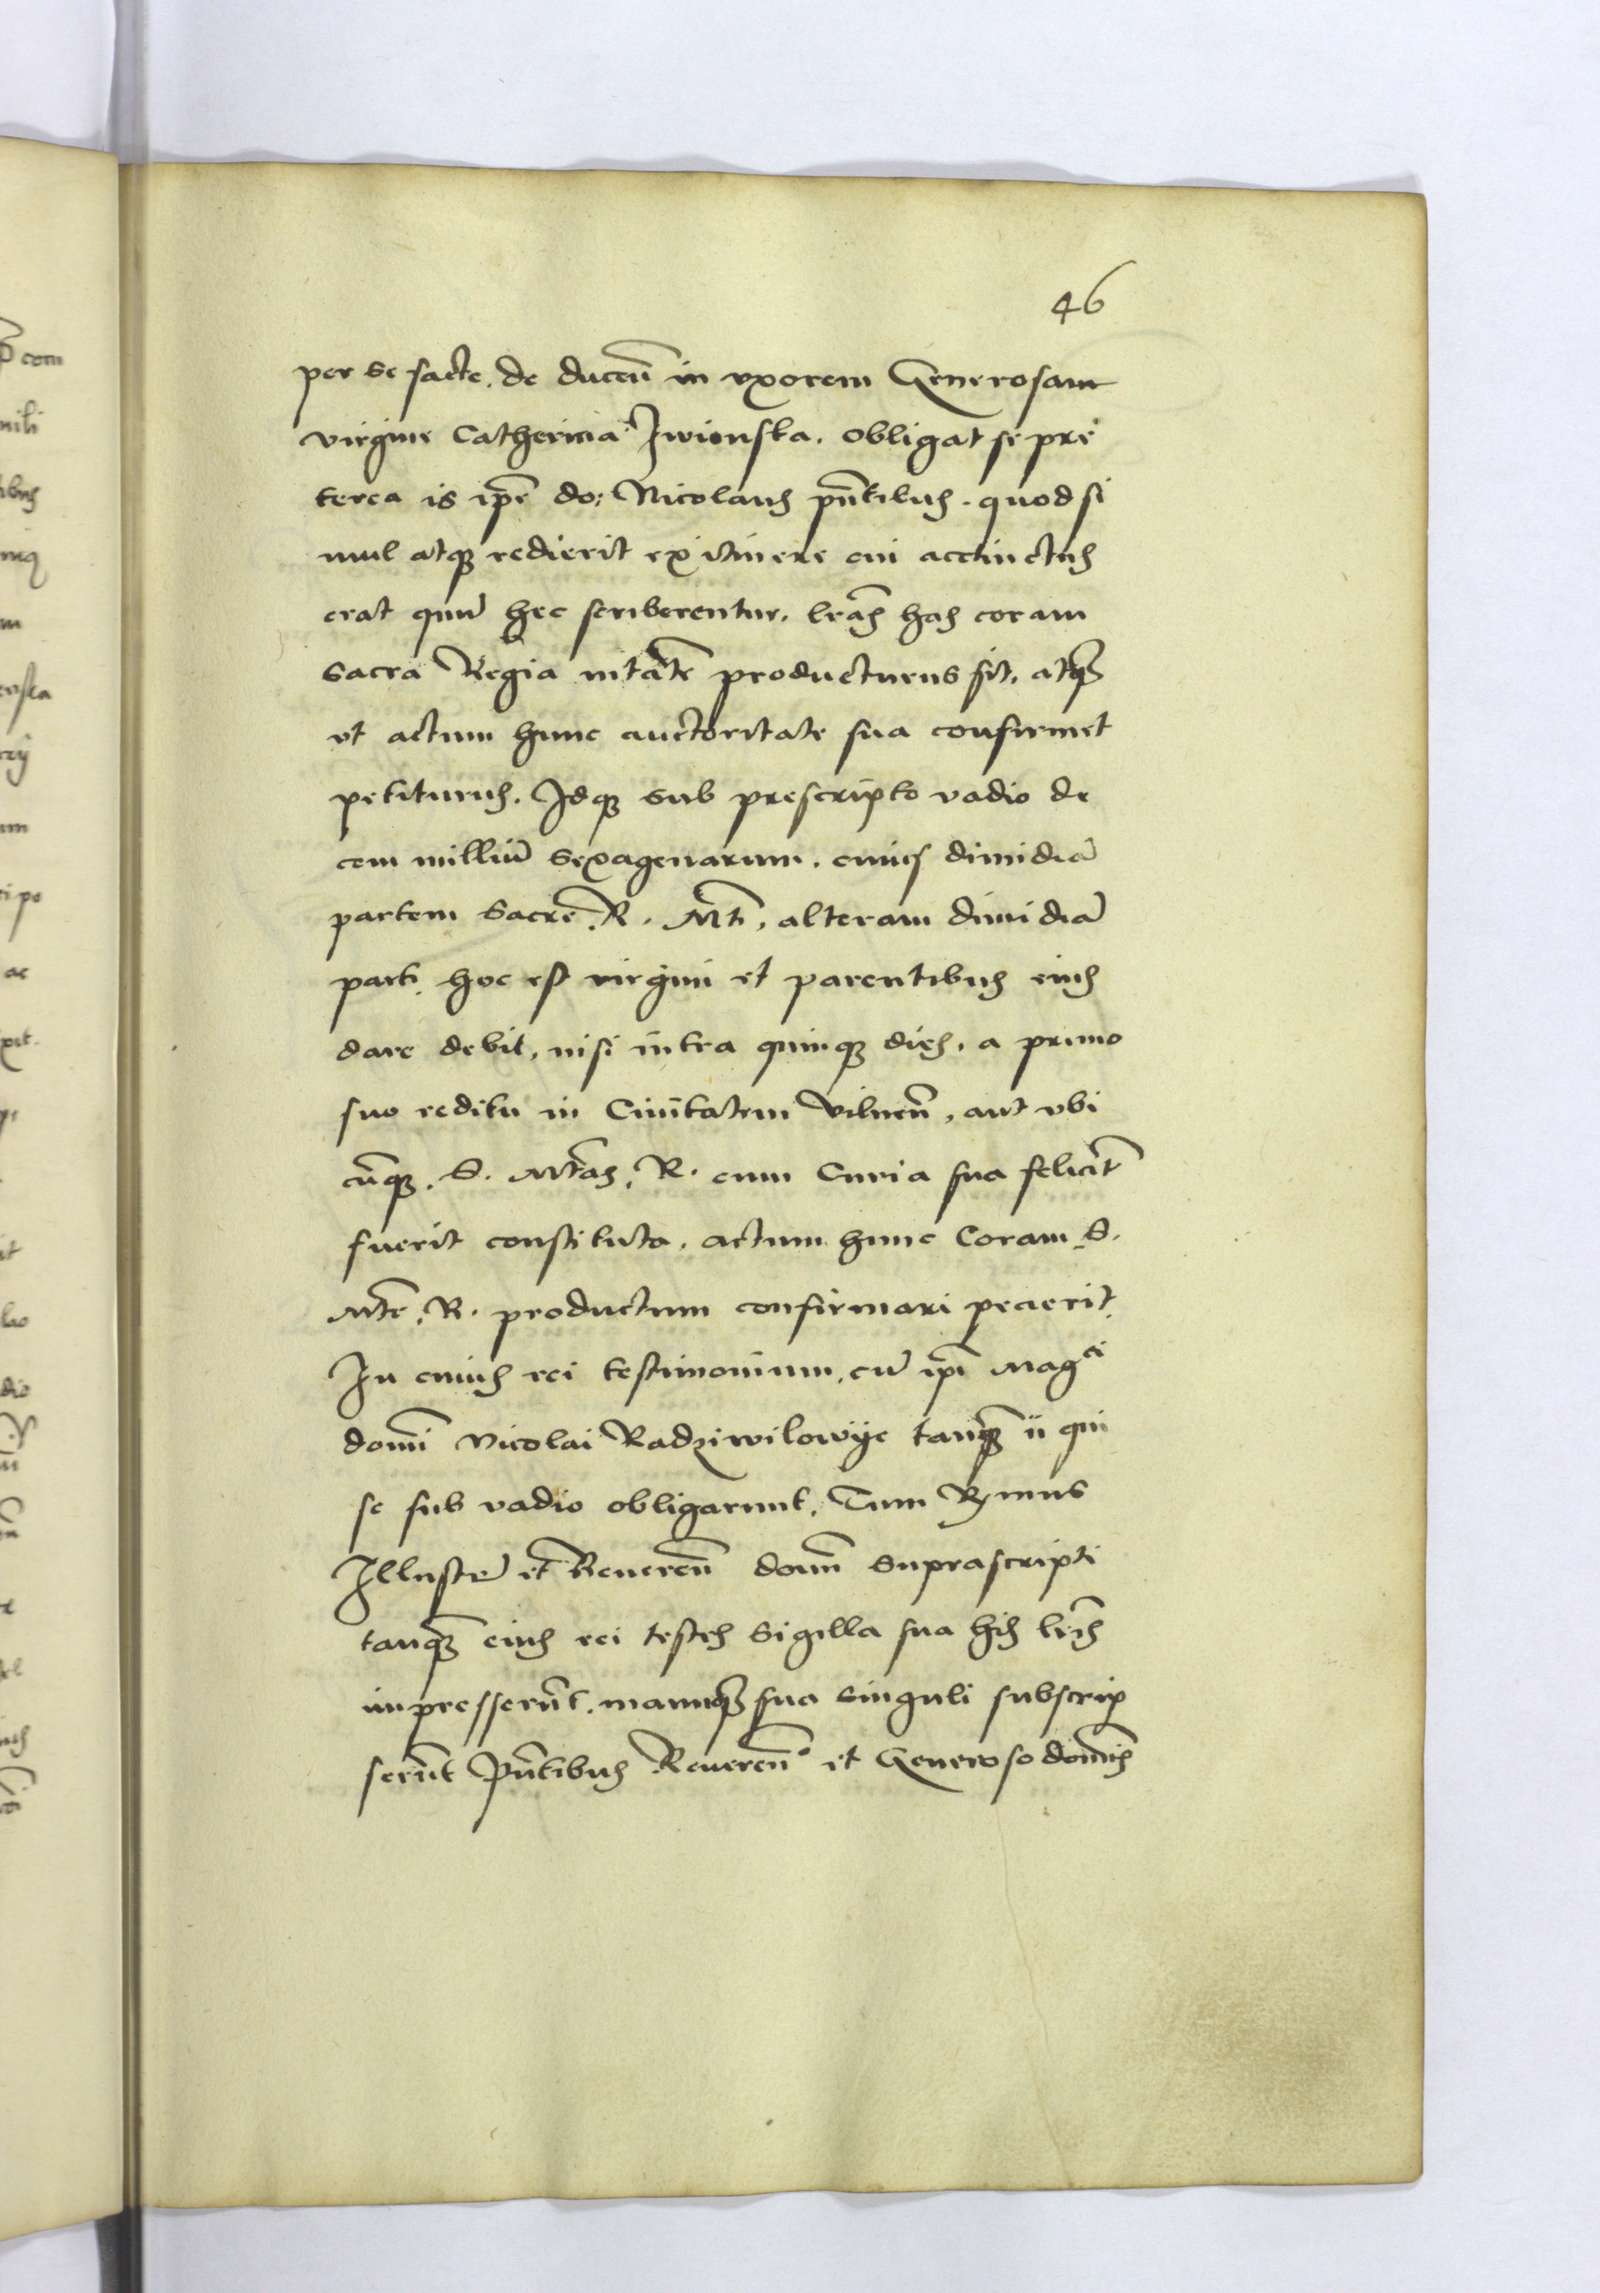 46
per se facte. de ducen̄ in vxorem Generosam
virginē Catherinā Iwienska. obligat se pre
terea is ip̄e do: Nicolaus pn̄tibus. quod si
mul atq redierit ex itinere cui accinctus
erat quū hec scriberentur. lr̄as has coram
Sacra Regia mtate producturus sit. atq
vt actum hunc auctoritate sua confirmet
petiturus. Idq sub prescripto vadio de
cem milliū Sexagenarum. cuius dimidiā
partem Sacre. R. Mti, alteram dimidiā
parti. hoc est virgini et parentibus eius
dare debit, nisi intra quinq dies. a primo
suo reditu in Ciuitatem Vilnen̄, aut vbi
cūq. S. Mtas. R. cum Curia sua felicit̄
fuerit constituta. actum hunc Coram S.
Mte. R. productum confirmari pecierit.
In cuius rei testimonium. cū ip̄i Magci
domi Nicolai Radziwilowye tanq ii qui
se sub vadio obligarunt. Tum R mus
Illustr et Reueren̄ domi suprascripti
tanq eius rei testes Sigilla sua his lr̄is
impresserūt. manuq sua singuli subscrip
serūt Pn̄tibus Reueren̄ et Generoso domīs